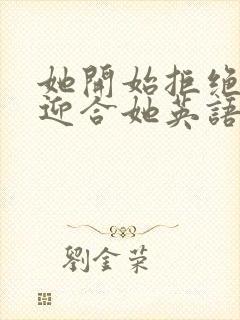 她開始拒絕
迎合她英語
劉金荣